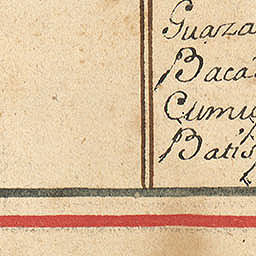 Guaza
Baca
Cumu
Batis